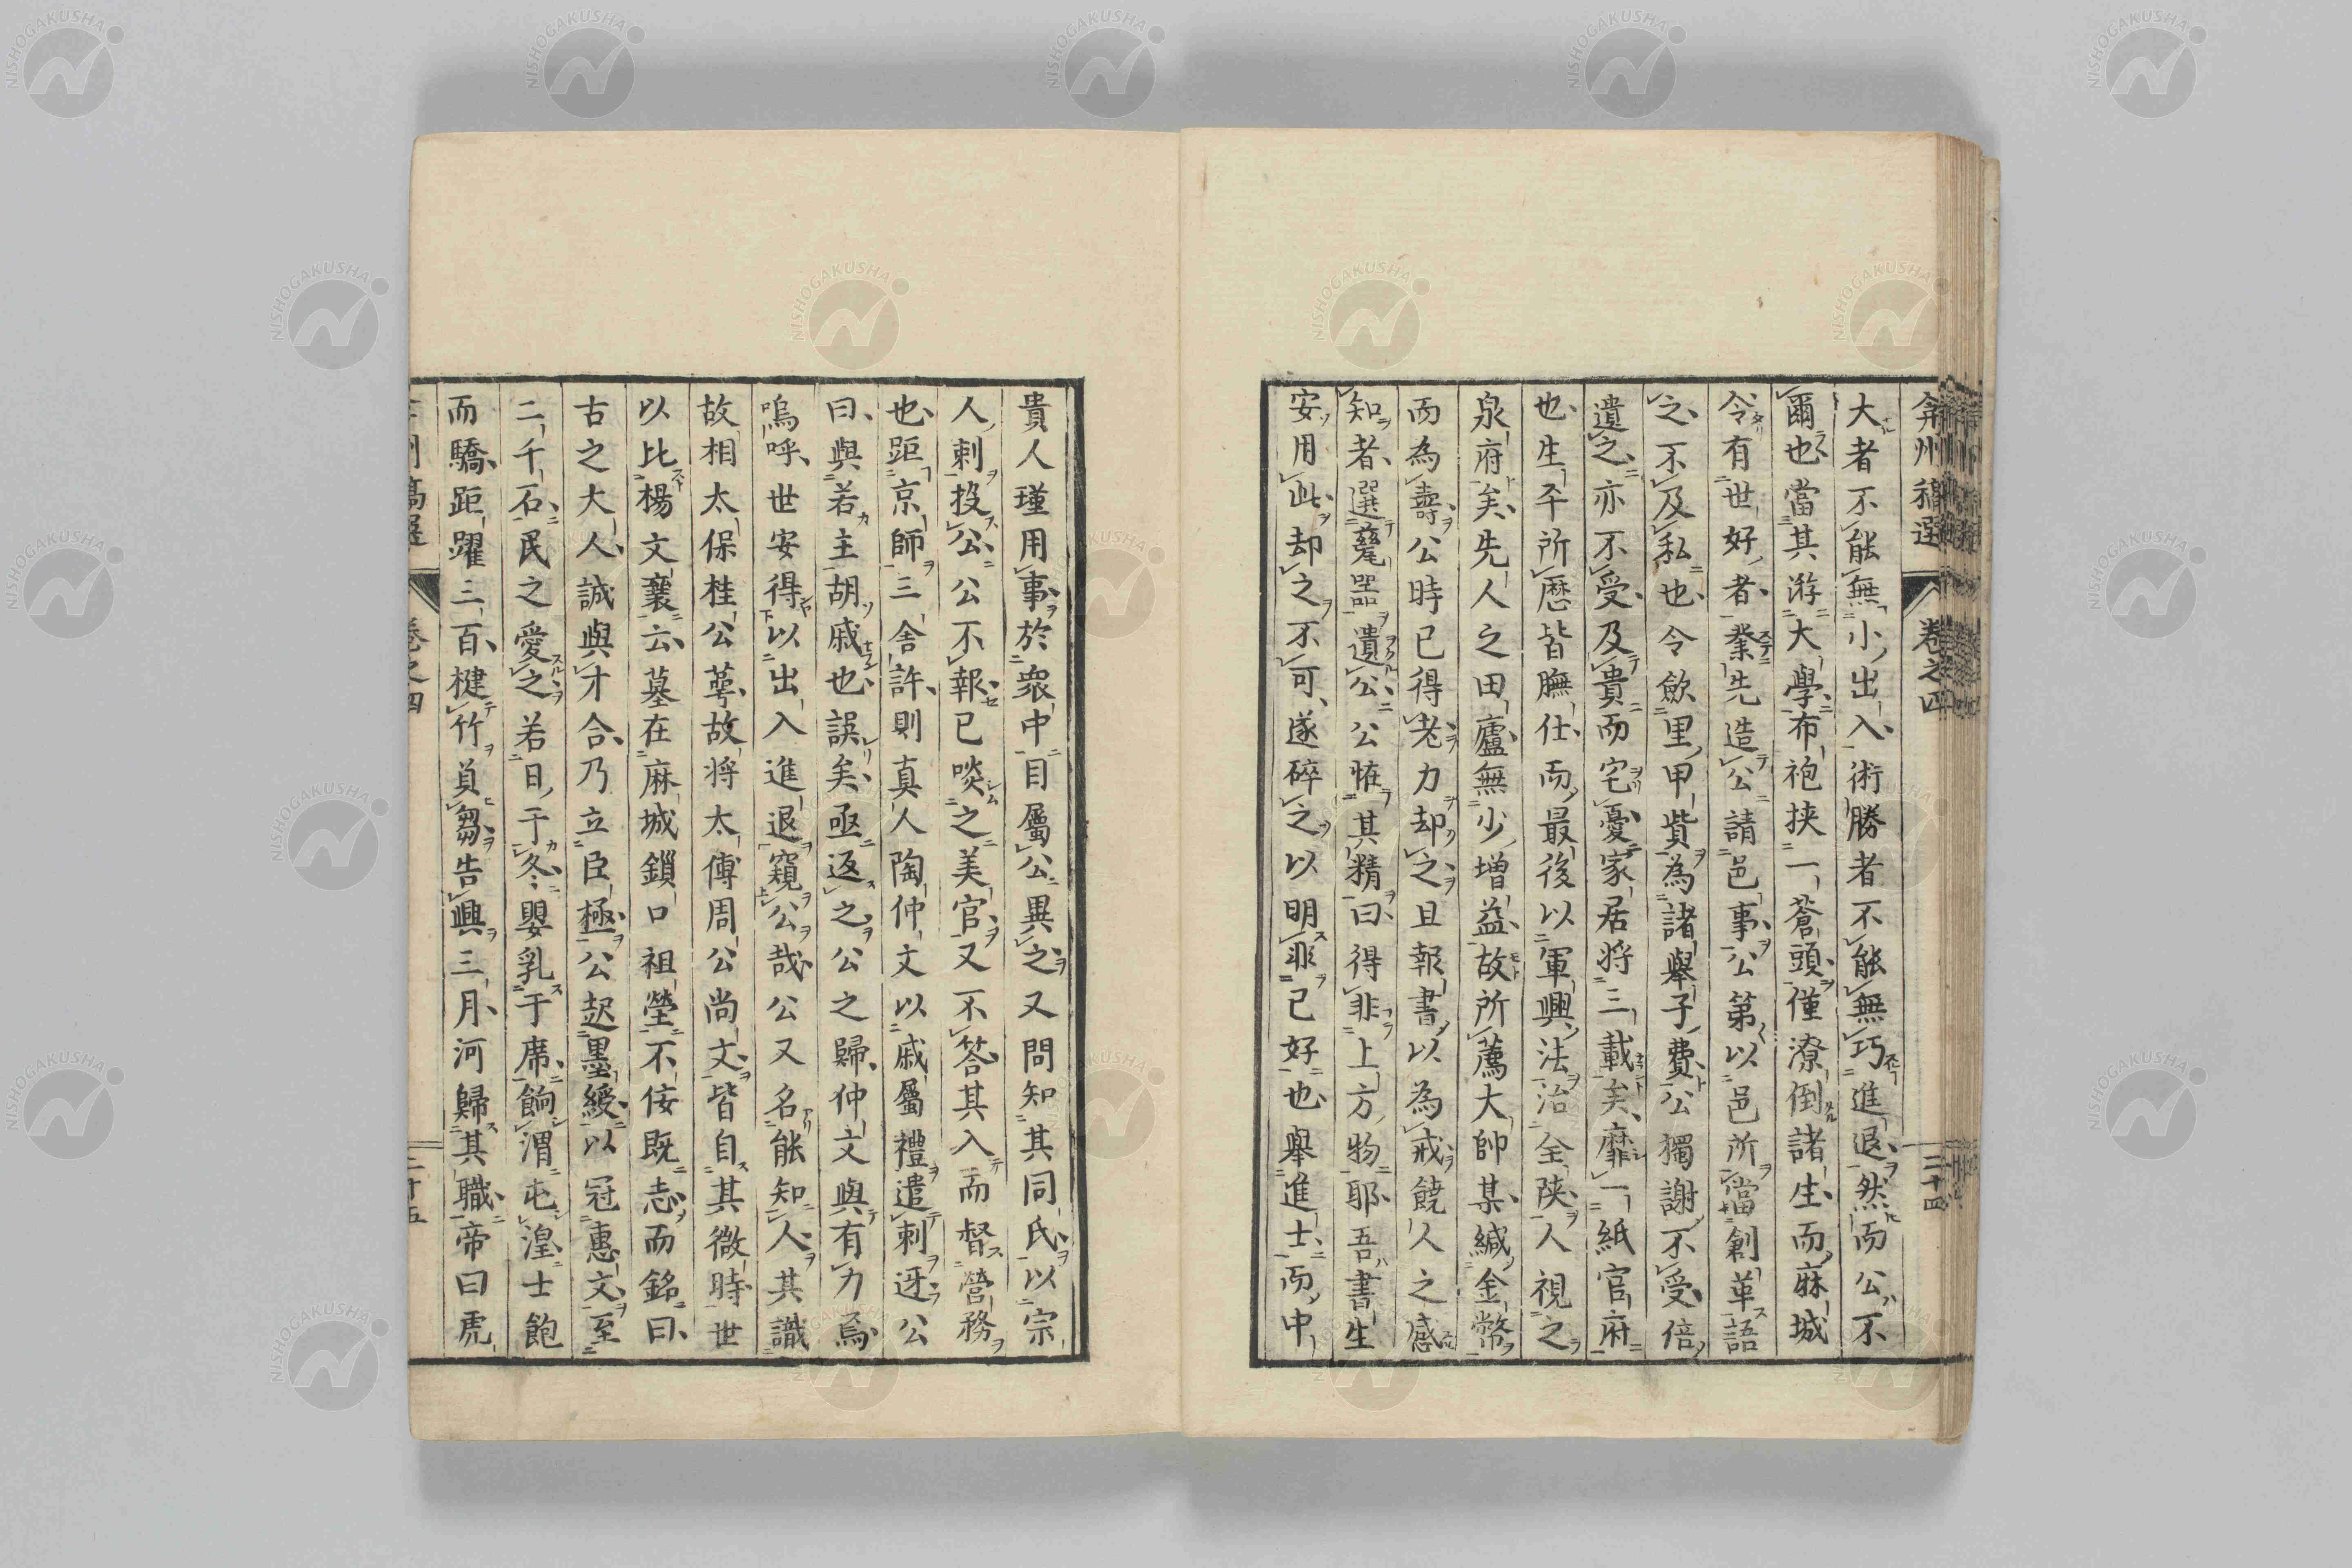 弇州稿選 卷之四 三十四
大者不能無小出入術勝者不能無巧進退然而公不
爾也當其游大學布袍挾一蒼頭僅潦倒諸生而麻城
令有世好者業先造公請邑事公第以邑所當創革語
之不及私也令歙里甲貲為諸舉子費公獨謝不受倍
遺之亦不受及貴而宅憂家居將三載矣靡一紙官府
也生平所歷皆膴仕而最後以軍興法治全陝人視之
泉府矣先人之田廬無少增益故所薦大帥某緘金幣
而為壽公時已得老力却之且報書以為戒饒人之感
知者選甆器遺公公恠其精曰得非上方物耶吾書生
安用此却之不可遂碎之以明非已好也舉進士而中
貴人瑾用事於衆中目屬公異之又問知其同氏以宗
人刺投公公不報已啖之美官又不答其入而督營務
也距京師三舍許則真人陶仲文以戚屬禮遣刺迓公
曰與若主胡戚也誤矣亟返之公之歸仲文與有力焉
嗚呼世安得以出入進退窺公哉公又名能知人其識
故相太保桂公蕚故將太傅周公尚文皆自其微時世
以比楊文襄云墓在麻城鎖口祖塋不侫既志而銘曰
古之大人誠與才合乃立臣極公起墨綬以冠惠文至
二千石民之愛之若日于冬嬰乳于席餉渭屯湟士飽
而驕距躍三百楗竹負芻告興三月河歸其職帝曰虎
卷之四